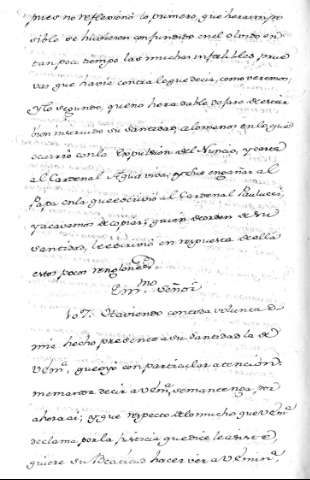 pues no reflexionó lo primero, que hera impo
sible se hubiesen confundido en el olvido en
tan poco tiempo las muchas infalibles prue
vas que havia contra lo que decir, como veremos;
y lo segundo, que no hera dable dejase de estar
bien su Santidad, a lo menos en lo que
ocurrio con la Expulsion del Nuncio, y carta
al Cardenal Aquaviva, y que engañar al
Papa en la que escrivió al Cardenal Paulucci,
y acavamos de copiar; quien de orden de su
Santidad, le escrivió en respuesta de ella
estos pocos renglones
Em.mo Señor
107. Haviendo con toda
mie hecho presente a su Santidad la de
V.Em.a, que oyó con particular atencion:
me mandó decir a V.Em.a se mantenga, por
ahora ai; y que respecto de lo mucho que V.Em.a
declama, por la justicia que dice le asiste,
quiere su Beatitud hacer ver a V.Em.a